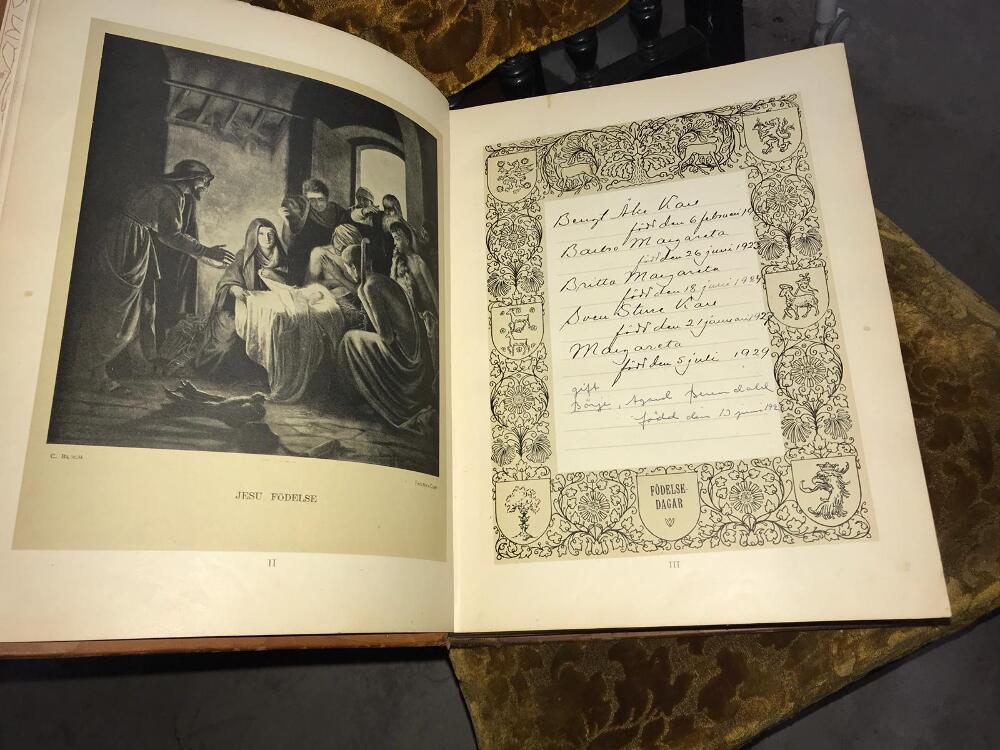 C. BLOCH
JESU FÖDELSE
II
Bengt Åke Kare
född den 6 februari
Margareta
född den 26 juni 1923
Britta Margareta
född den 18 juni
Sven Sture Kare
född den 21 januari 1927
Margareta
född den 5 juli 1929
gift
Börje,
född den 13 juni
FÖDELSE-
DAGAR
III